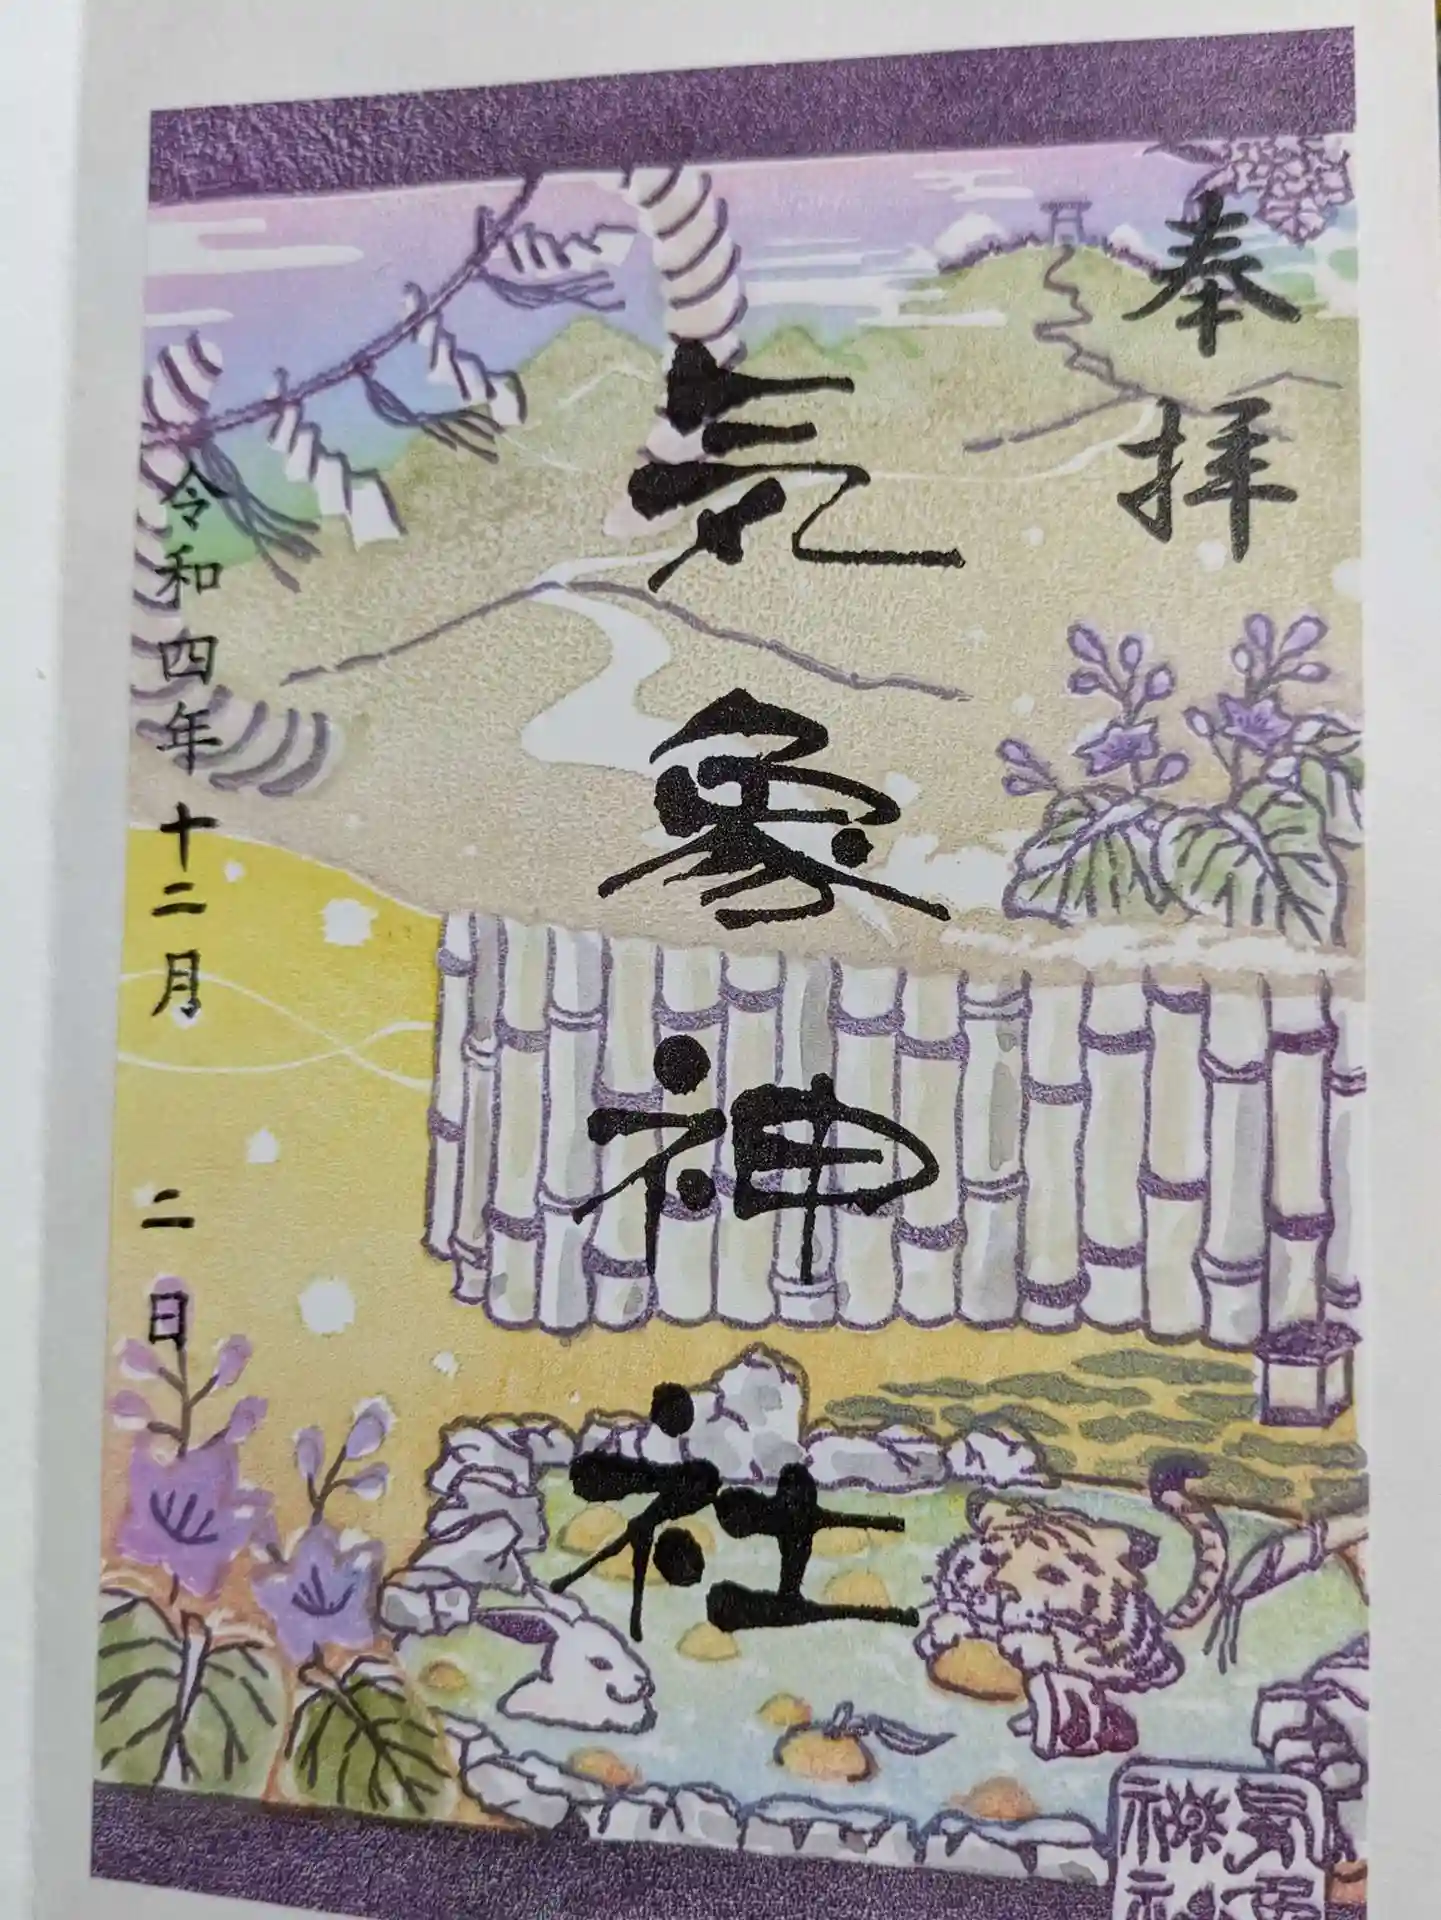 奉拝
気象神社
令和四年十二月二日